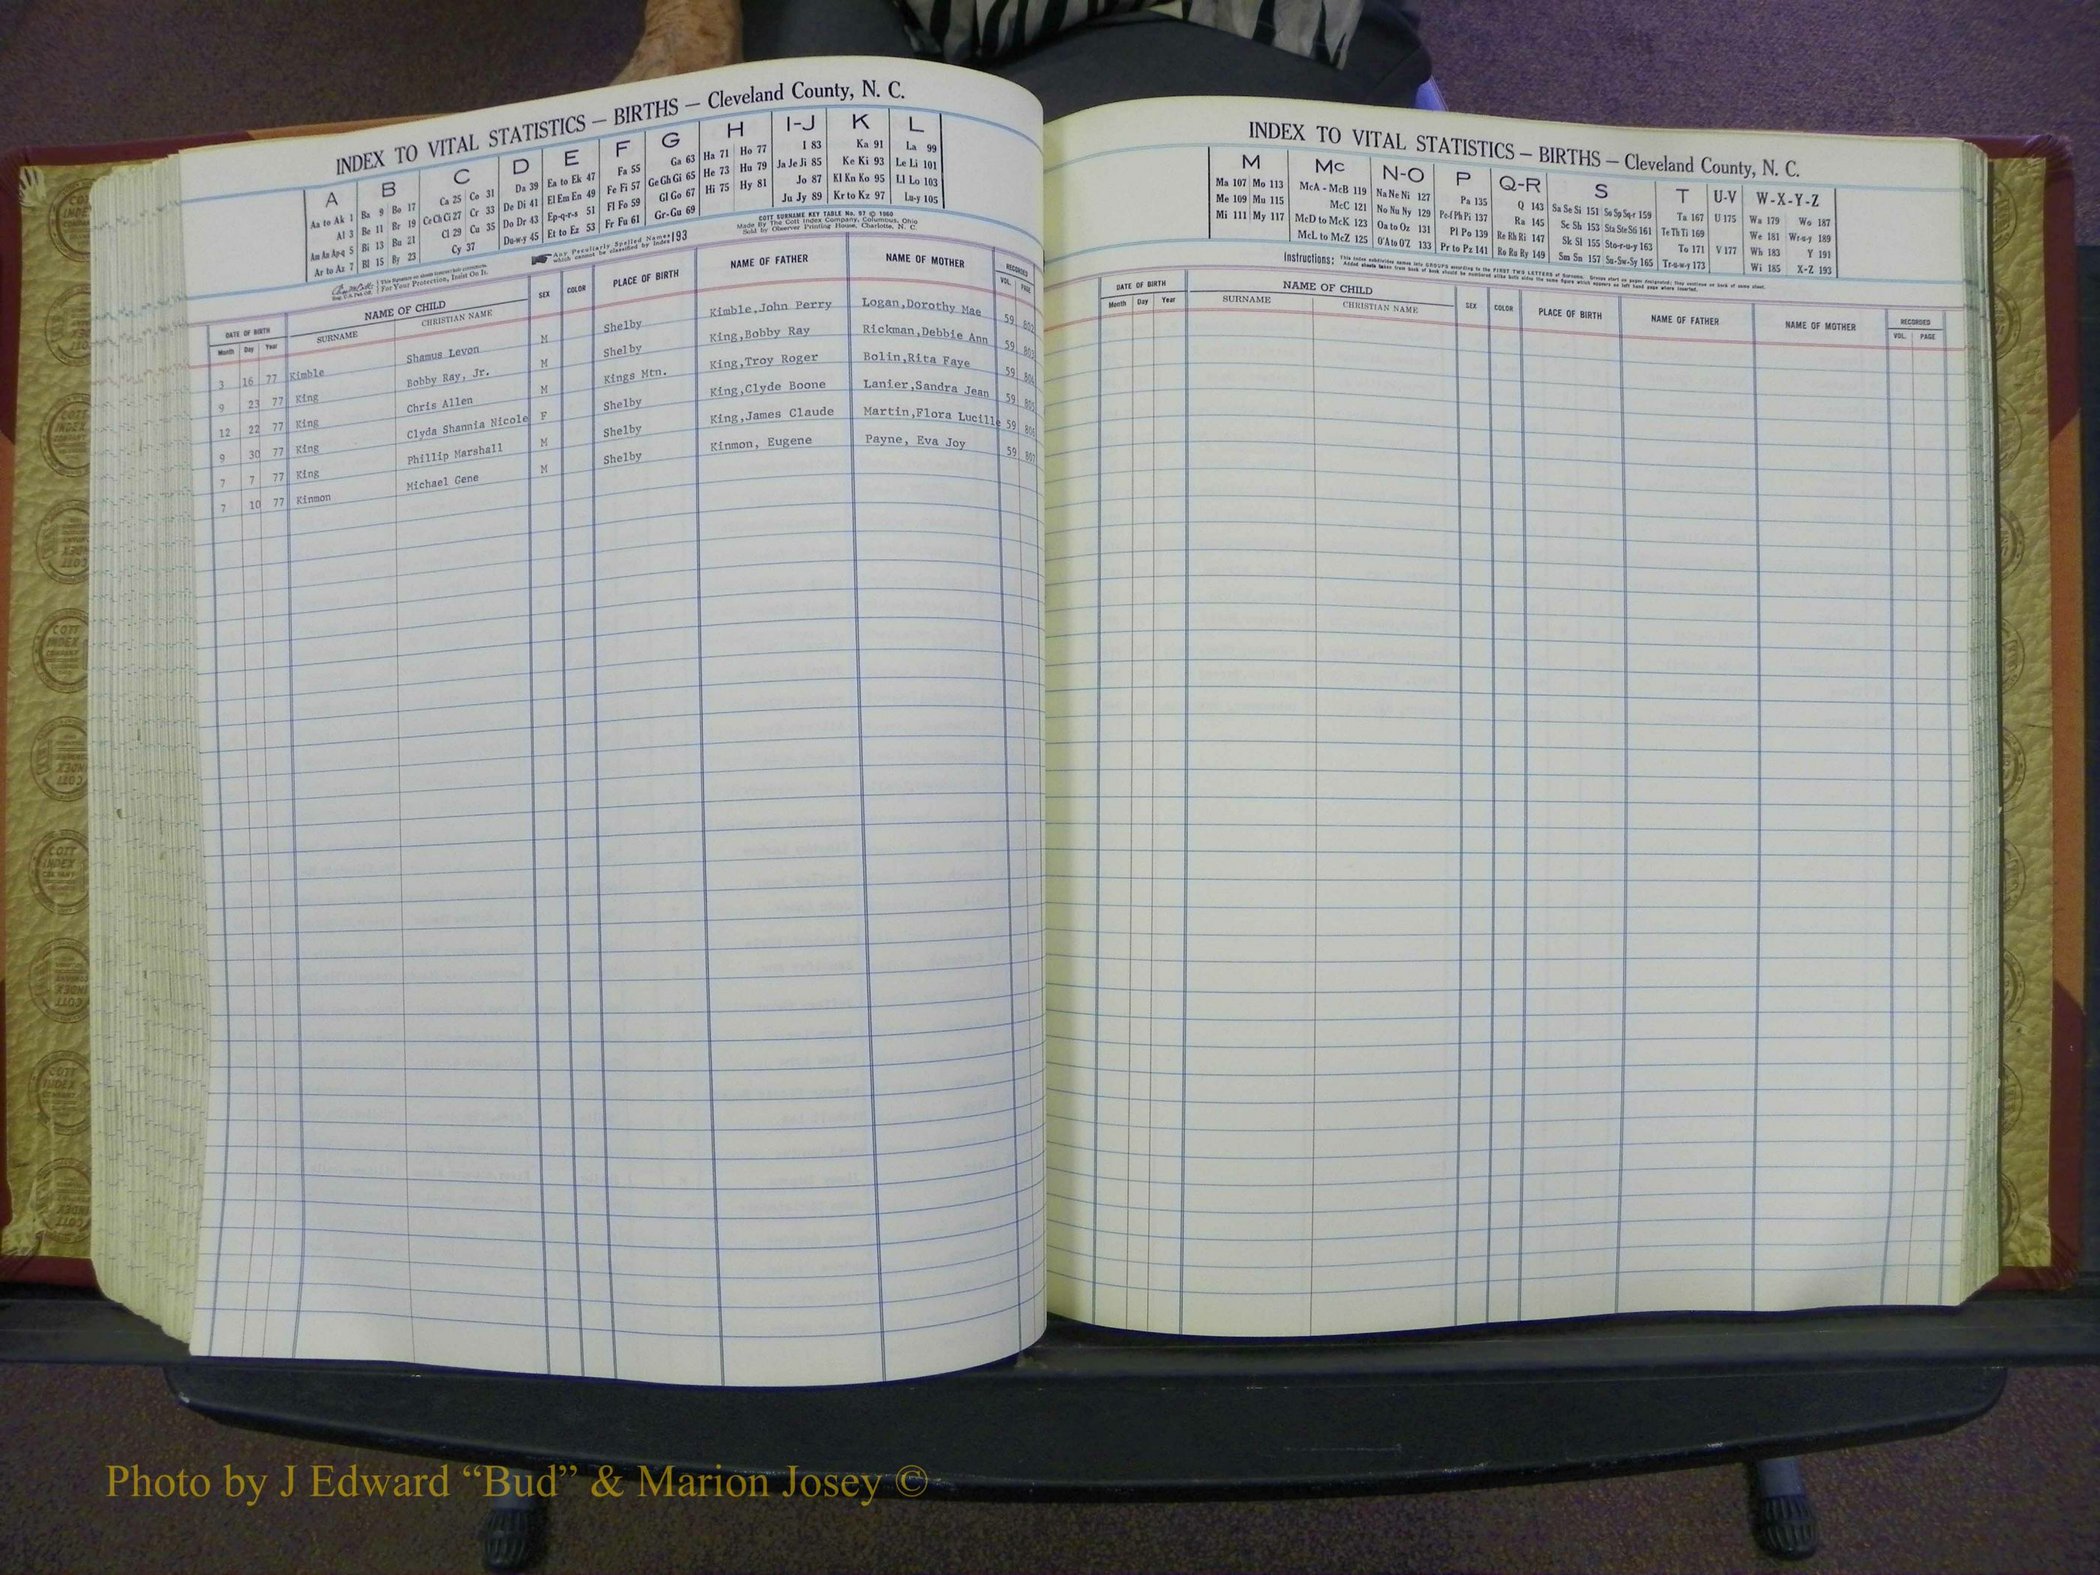 INDEX TO VITAL STATISTICS — BIRTHS — Cleveland County, N. C.
A B C D E F G H I-J K L
Aa to Ak 1 Ba 9 Bo 17 Ca 25 Co 31 Da 39 Ea to Ek 47 Fa 55 Ga 63 Ha 71 Ho 77 I 83 Ka 91 La 99
Al 3 Be 11 Br 19 Ce Ch Ci 27 Cr 33 De Di 41 El Em En 49 Fe Fi 57 Ge Gh Gi 65 He 73 Hu 79 Ja Je Ji 85 Ke Ki 93 Le Li 101
Am An Ap-q 5 Bi 13 Bu 21 Cl 29 Cu 35 Do Dr 43 Ep-q-r-s 51 Fl Fo 59 Gl Go 67 Hi 75 Hy 81 Jo 87 Kl Kn Ko 95 Ll Lo 103
Ar to Az 7 Bl 15 By 23 Cy 37 Du-w-y 45 Et to Ez 53 Fr Fu 61 Gr-Gu 69 Ju Jy 89 Kr to Kz 97 Lu-y 105
For Your Protection, Insist On It.
Any Peculiarly Spelled Names which cannot be classified by Index 193
COTT SURNAME KEY TABLE No. 97 © 1960
Made By The Cott Index Company, Columbus, Ohio
Sold by Observer Printing House, Charlotte, N. C.
DATE OF BIRTH NAME OF CHILD SEX COLOR PLACE OF BIRTH NAME OF FATHER NAME OF MOTHER RECORDED
Month Day Year SURNAME CHRISTIAN NAME VOL. PAGE
3 16 77 Kimble Shamus Levon M Shelby Kimble,John Perry Logan,Dorothy Mae 59 802
9 23 77 King Bobby Ray, Jr. M Shelby King,Bobby Ray Rickman,Debbie Ann 59 803
12 22 77 King Chris Allen M Kings Mtn. King,Troy Roger Bolin,Rita Faye 59 804
9 30 77 King Clyda Shannia Nicole F Shelby King,Clyde Boone Lanier,Sandra Jean 59 805
7 7 77 King Phillip Marshall M Shelby King,James Claude Martin,Flora Lucille 59 806
7 10 77 Kinmon Michael Gene M Shelby Kinmon, Eugene Payne, Eva Joy 59 807
INDEX TO VITAL STATISTICS — BIRTHS — Cleveland County, N. C.
M Mc N-O P Q-R S T U-V W-X-Y-Z
Ma 107 Mo 113 McA - McB 119 Na Ne Ni 127 Pa 135 Q 143 Sa Se Si 151 So Sp Sq-r 159 Ta 167 U 175 Wa 179 Wo 187
Me 109 Mu 115 McC 121 No Nu Ny 129 Pe-f Ph Pi 137 Ra 145 Sc Sh 153 Sta Ste Sti 161 Te Th Ti 169 We 181 Wr-u-y 189
Mi 111 My 117 McD to McK 123 Oa to Oz 131 Pl Po 139 Re Rh Ri 147 Sk Sl 155 Sto-r-u-y 163 To 171 V 177 Wh 183 Y 191
McL to McZ 125 O'A to O'Z 133 Pr to Pz 141 Ro Ru Ry 149 Sm Sn 157 Su-Sw-Sy 165 Tr-u-w-y 173 Wi 185 X-Z 193
Instructions: This index subdivides names into GROUPS according to the FIRST TWO LETTERS of Surname. Groups start on pages designated; they continue on back of same sheet.
Added sheets taken from back of book should be numbered alike both sides the same figure which appears on left hand page where inserted.
DATE OF BIRTH NAME OF CHILD SEX COLOR PLACE OF BIRTH NAME OF FATHER NAME OF MOTHER RECORDED
Month Day Year SURNAME CHRISTIAN NAME VOL. PAGE
COTT INDEX COMPANY
Photo by J Edward “Bud” & Marion Josey ©